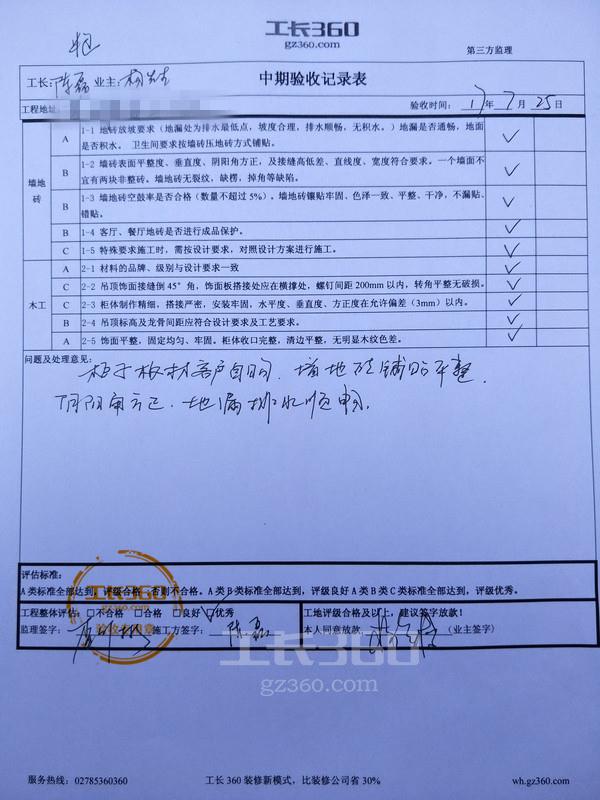 工长360
gz360.com
第三方监理
工长：陈磊 业主：杨先生
中期验收记录表
工程地址
验收时间：17年7月25日
墙地砖
A 1-1 地砖放坡要求（地漏处为排水最低点，坡度合理，排水顺畅，无积水。）地漏是否通畅，地面是否积水。 卫生间要求按墙砖压地砖方式铺贴。 ✓
B 1-2 墙砖表面平整度、垂直度、阴阳角方正，及接缝高低差、直线度、宽度符合要求。一个墙面不宜有两块非整砖。墙地砖无裂纹，缺楞，掉角等缺陷。 ✓
B 1-3 墙地砖空鼓率是否合格（数量不超过 5%）。墙地砖镶贴牢固、色泽一致、平整、干净，不漏贴、错贴。 ✓
B 1-4 客厅、餐厅地砖是否进行成品保护。 ✓
C 1-5 特殊要求施工时，需按设计要求，对照设计方案进行施工。 ✓
木工
A 2-1 材料的品牌、级别与设计要求一致 ✓
C 2-2 吊顶饰面接缝倒 45°角，饰面板搭接处应在横撑处，螺钉间距 200mm 以内，转角平整无破损。 ✓
C 2-3 柜体制作精细，搭接严密，安装牢固，水平度、垂直度、方正度在允许偏差（3mm）以内。 ✓
B 2-4 吊顶标高及龙骨间距应符合设计要求及工艺要求。 ✓
A 2-5 饰面平整，固定均匀、牢固。柜体收口完整，清边平整，无明显木纹色差。 ✓
问题及处理意见：
柜子板材客户自购，墙地砖铺贴平整，
阴阳角方正，地漏排水顺畅。
评估标准：
A 类标准全部达到，评级合格，否则不合格。A 类 B 类标准全部达到，评级良好 A 类 B 类 C 类标准全部达到，评级优秀。
工程整体评估：□不合格 □合格 □良好 ☑优秀
工地评级合格及以上，建议签字放款！
监理签字： 施工方签字：陈磊
本人同意放款 （业主签字）
工长360
工长360
gz360.com
服务热线：02785360360
工长 360 装修新模式，比装修公司省 30%
wh.gz360.com